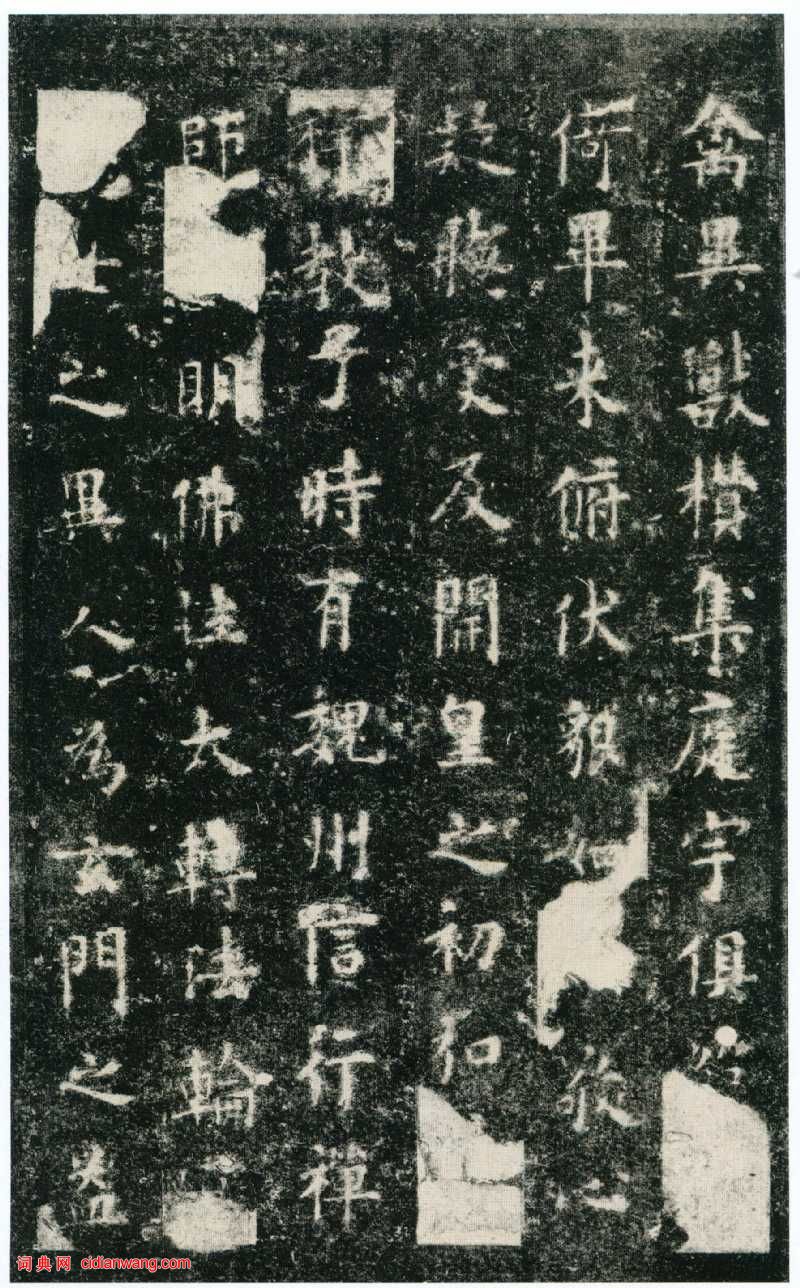 禽異獸攢集庭宇俱
倚畢來俯伏貌如敬心
疑聽受及開皇之初弘
釋教于時有魏州信行禪
師明佛性大轉法輪
世之異人為玄門之益
词典网 cidianwang.com